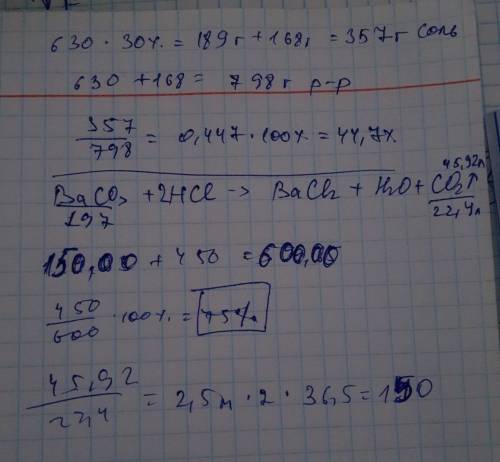 630 · 30% = 189г + 168г = 357г соль
630 + 168 = 798г р-р
357/798 = 0,447 · 100% = 44,7%
45,92л
BaCO3 + 2HCl -> BaCl2 + H2O + CO2↑
197 22,4л
150,00 + 450 = 600,00
450/600 · 100% = 75%
45,92/22,4 = 2,5м · 2 · 36,5 = 150